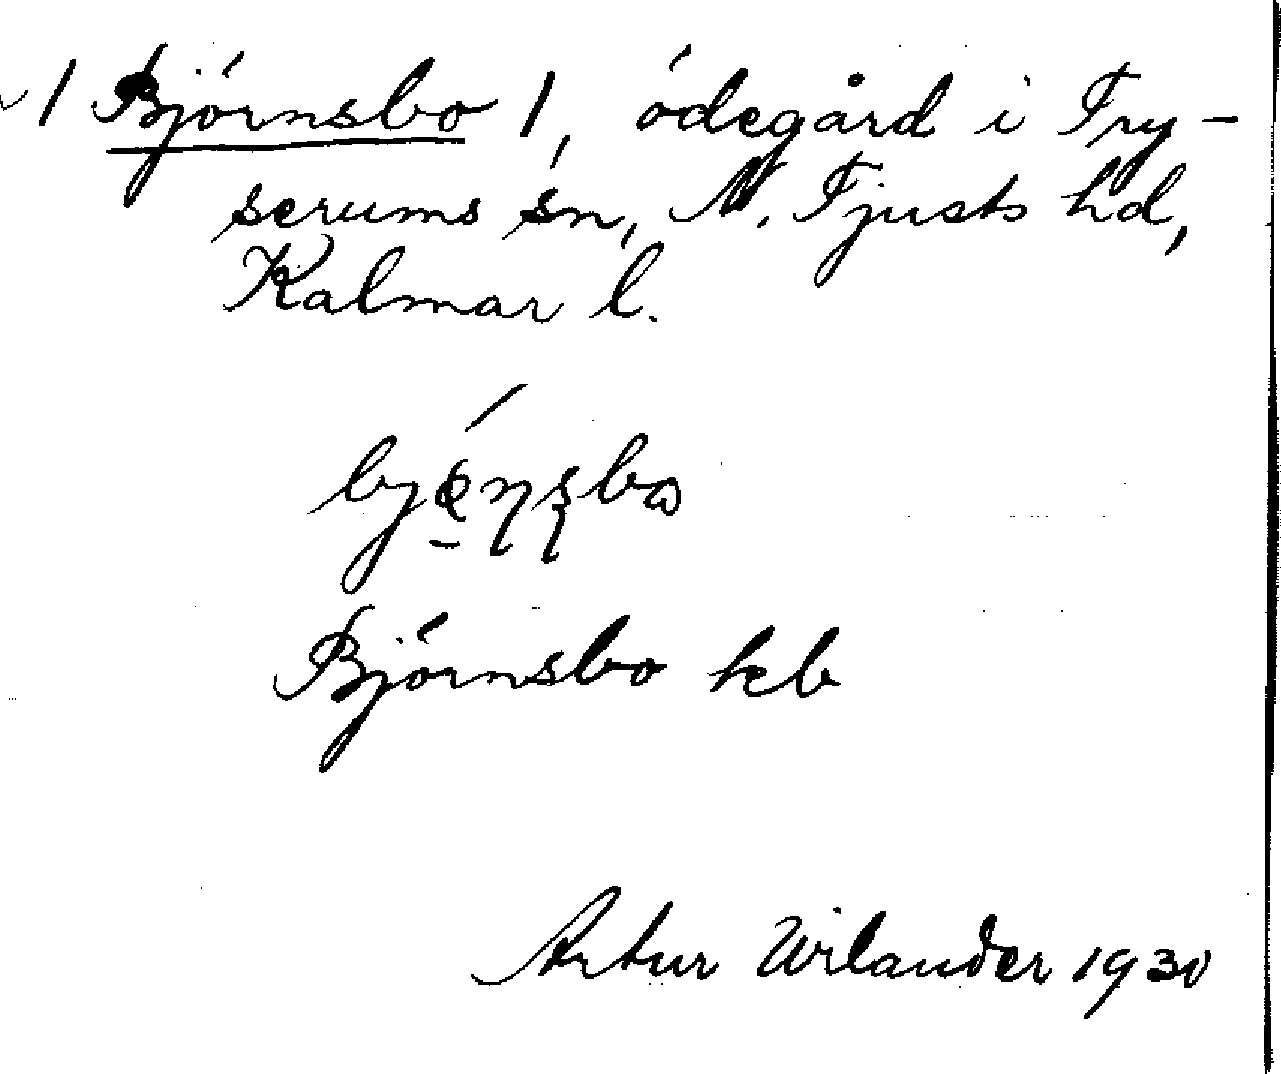 / Björnsbo /, ödegård i Try-
serums sn, N. Tjusts hd,
Kalmar l.
Björnsbo kb
Artur Wilander 1930